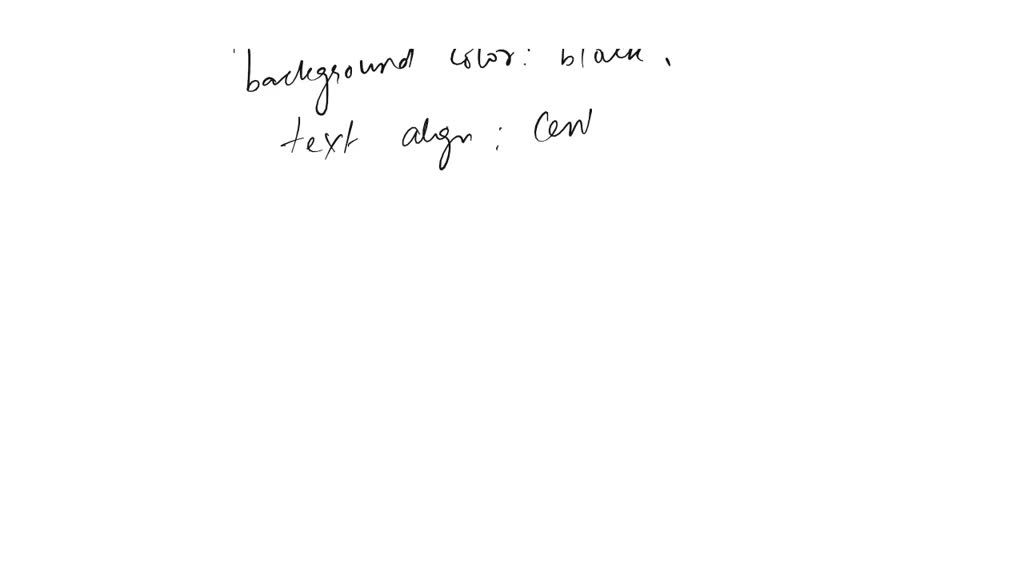 background color: black.
text align: Cen